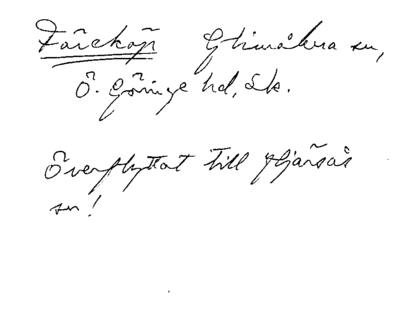 Glimåkra sn,
Ö. Göinge hd, Sk.
Överflyttat till Hjärsås
sn!